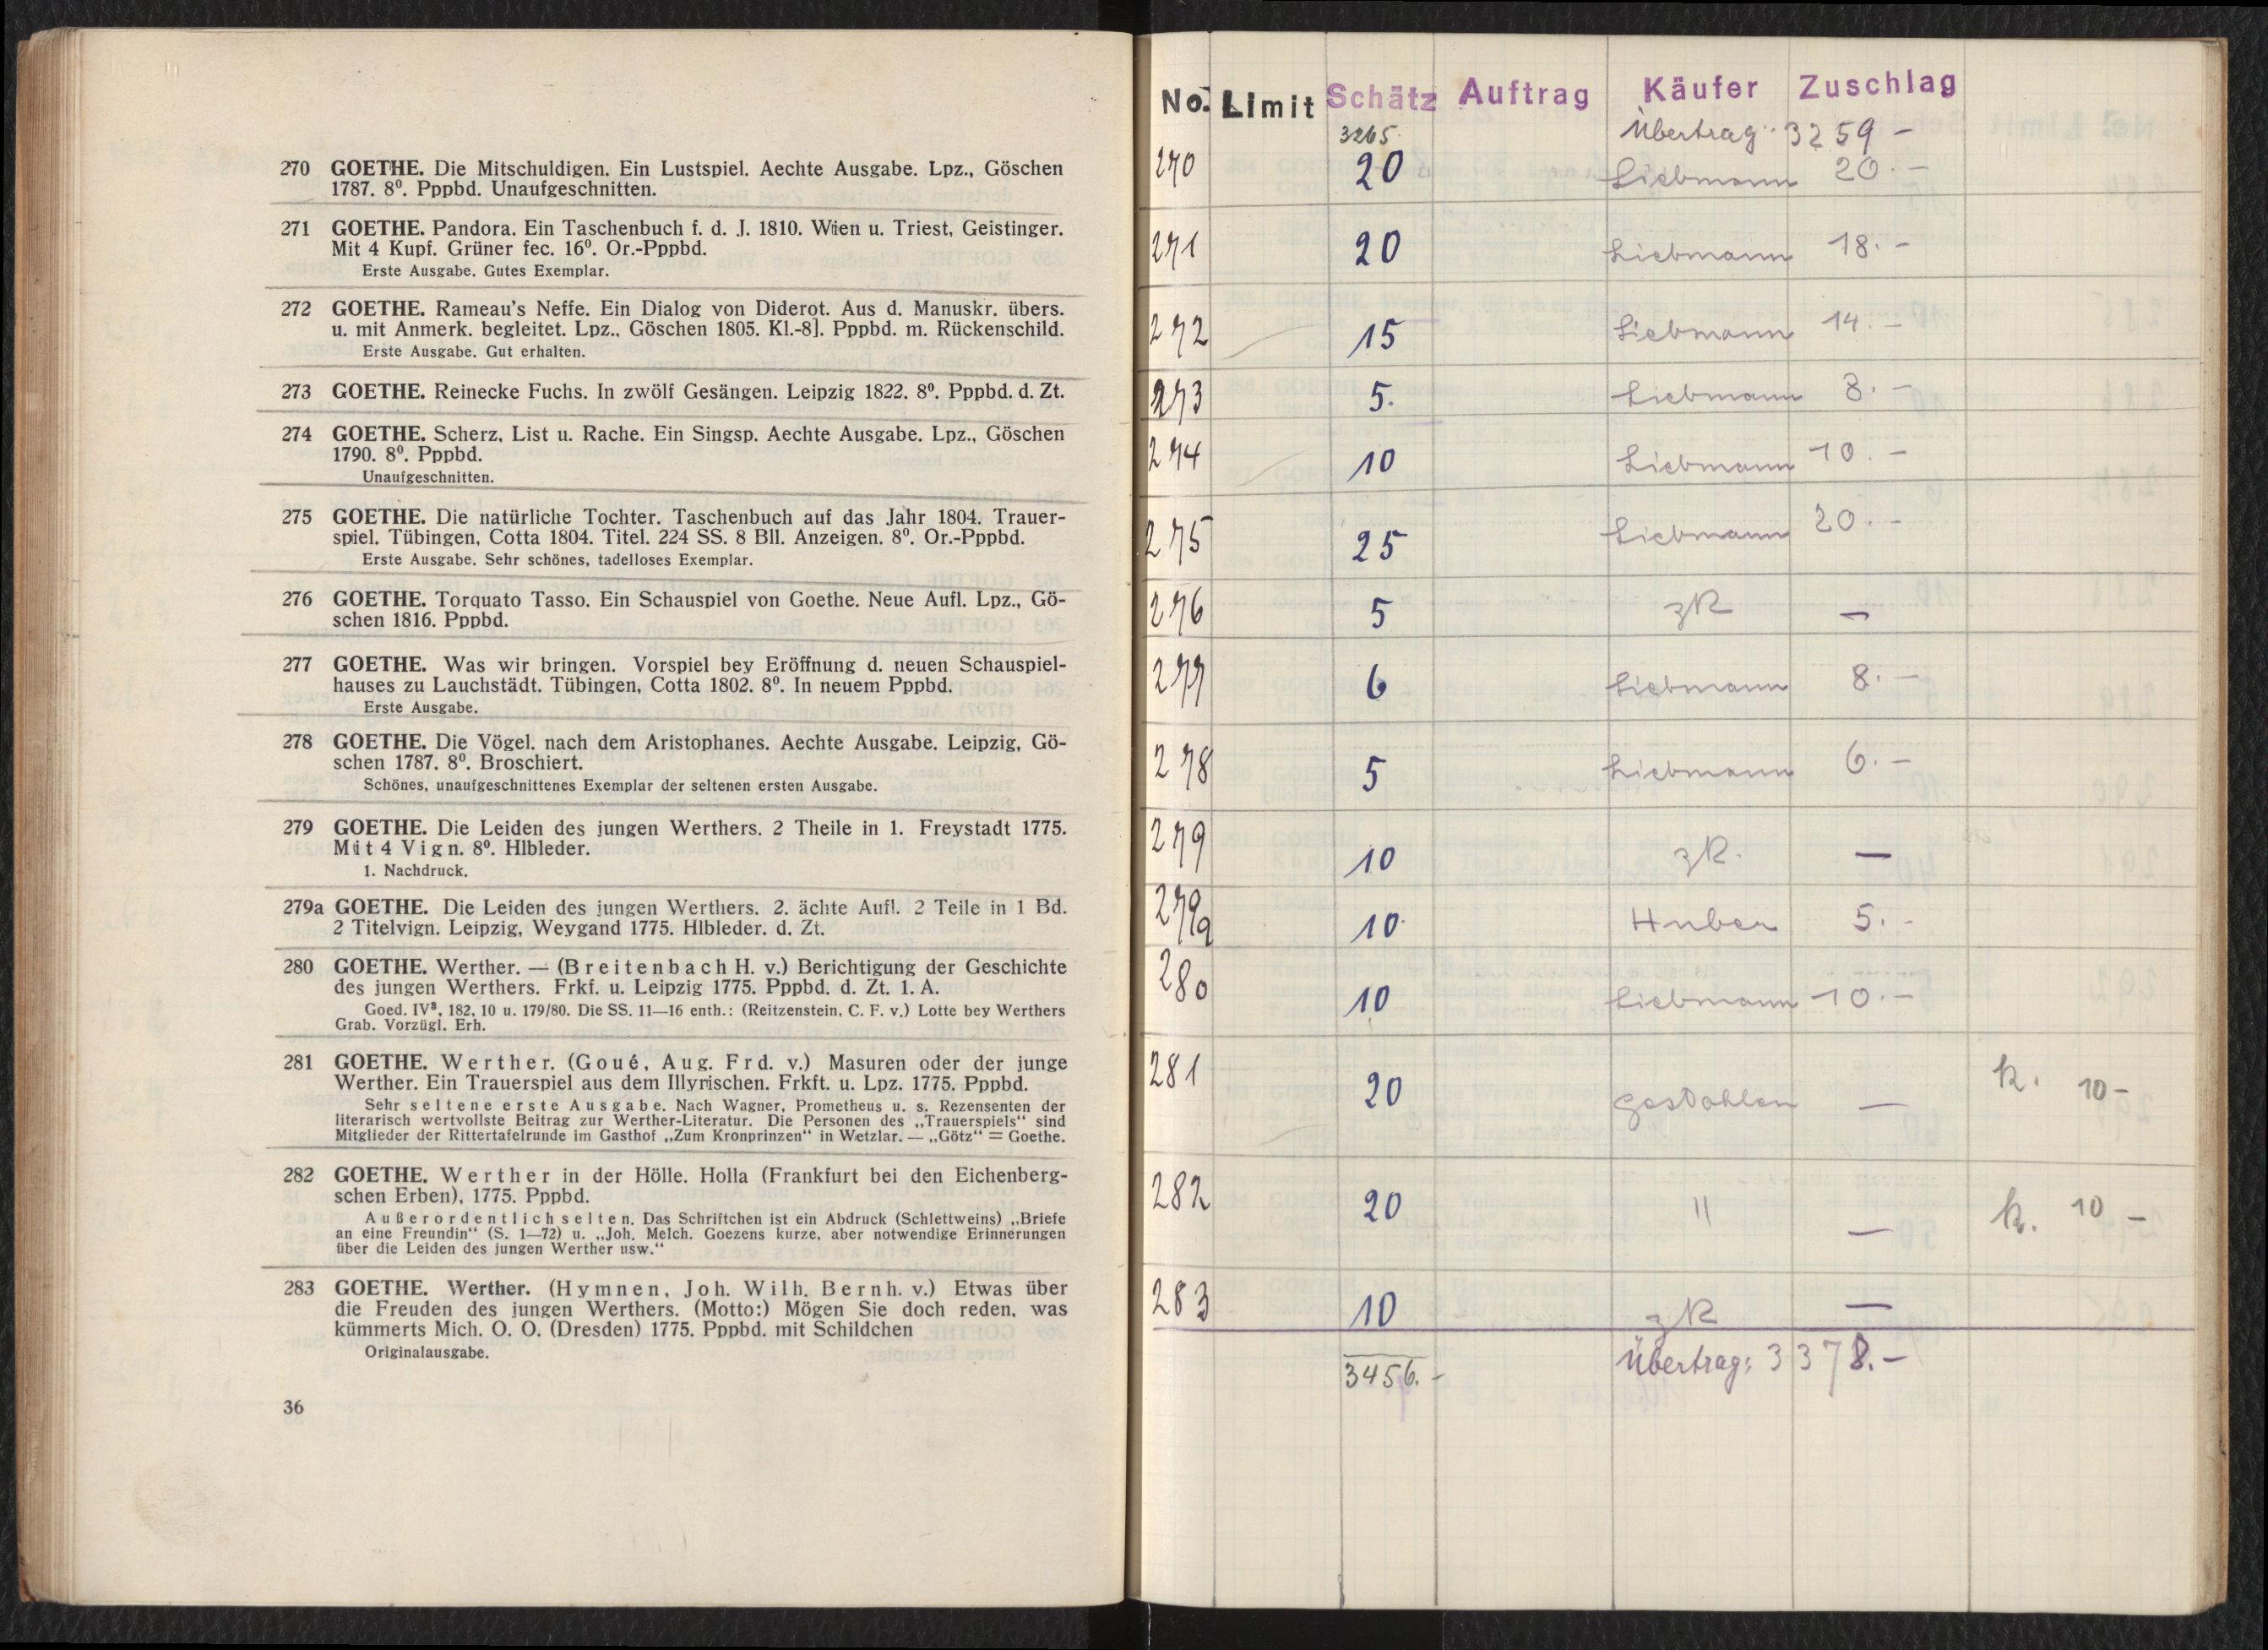 270 GOETHE. Die Mitschuldigen. Ein Lustspiel. Aechte Ausgabe. Lpz., Göschen
1787. 8⁰. Pppbd. Unaufgeschnitten.
271 GOETHE. Pandora. Ein Taschenbuch f. d. J. 1810. Wien u. Triest, Geistinger.
Mit 4 Kupf. Grüner fec. 16⁰. Or.-Pppbd.
Erste Ausgabe. Gutes Exemplar.
272 GOETHE. Rameau's Neffe. Ein Dialog von Diderot. Aus d. Manuskr. übers.
u. mit Anmerk. begleitet. Lpz., Göschen 1805. Kl.-8]. Pppbd. m. Rückenschild.
Erste Ausgabe. Gut erhalten.
273 GOETHE. Reinecke Fuchs. In zwölf Gesängen. Leipzig 1822. 8⁰. Pppbd. d. Zt.
274 GOETHE. Scherz, List u. Rache. Ein Singsp. Aechte Ausgabe. Lpz., Göschen
1790. 8⁰. Pppbd.
Unaufgeschnitten.
275 GOETHE. Die natürliche Tochter. Taschenbuch auf das Jahr 1804. Trauer-
spiel. Tübingen, Cotta 1804. Titel. 224 SS. 8 Bll. Anzeigen. 8⁰. Or.-Pppbd.
Erste Ausgabe. Sehr schönes, tadelloses Exemplar.
276 GOETHE. Torquato Tasso. Ein Schauspiel von Goethe. Neue Aufl. Lpz., Gö-
schen 1816. Pppbd.
277 GOETHE. Was wir bringen. Vorspiel bey Eröffnung d. neuen Schauspiel-
hauses zu Lauchstädt. Tübingen, Cotta 1802. 8⁰. In neuem Pppbd.
Erste Ausgabe.
278 GOETHE. Die Vögel. nach dem Aristophanes. Aechte Ausgabe. Leipzig, Gö-
schen 1787. 8⁰. Broschiert.
Schönes, unaufgeschnittenes Exemplar der seltenen ersten Ausgabe.
279 GOETHE. Die Leiden des jungen Werthers. 2 Theile in 1. Freystadt 1775.
Mit 4 Vign. 8⁰. Hlbleder.
1. Nachdruck.
279a GOETHE. Die Leiden des jungen Werthers. 2. ächte Aufl. 2 Teile in 1 Bd.
2 Titelvign. Leipzig, Weygand 1775. Hlbleder. d. Zt.
280 GOETHE. Werther. — (Breitenbach H. v.) Berichtigung der Geschichte
des jungen Werthers. Frkf. u. Leipzig 1775. Pppbd. d. Zt. 1. A.
Goed. IV³, 182, 10 u. 179/80. Die SS. 11—16 enth.: (Reitzenstein, C. F. v.) Lotte bey Werthers
Grab. Vorzügl. Erh.
281 GOETHE. Werther. (Goué, Aug. Frd. v.) Masuren oder der junge
Werther. Ein Trauerspiel aus dem Illyrischen. Frkft. u. Lpz. 1775. Pppbd.
Sehr seltene erste Ausgabe. Nach Wagner, Prometheus u. s. Rezensenten der
literarisch wertvollste Beitrag zur Werther-Literatur. Die Personen des „Trauerspiels“ sind
Mitglieder der Rittertafelrunde im Gasthof „Zum Kronprinzen“ in Wetzlar. — „Götz“ = Goethe.
282 GOETHE. Werther in der Hölle. Holla (Frankfurt bei den Eichenberg-
schen Erben), 1775. Pppbd.
Außerordentlich selten. Das Schriftchen ist ein Abdruck (Schlettweins) „Briefe
an eine Freundin“ (S. 1—72) u. „Joh. Melch. Goezens kurze, aber notwendige Erinnerungen
über die Leiden des jungen Werther usw.“
283 GOETHE. Werther. (Hymnen, Joh. Wilh. Bernh. v.) Etwas über
die Freuden des jungen Werthers. (Motto:) Mögen Sie doch reden, was
kümmerts Mich. O. O. (Dresden) 1775. Pppbd. mit Schildchen
Originalausgabe.
36
No. Limit Schätz Auftrag Käufer Zuschlag
3265 Übertrag: 3259 -
270 20 Liebmann 20.-
271 20 Liebmann 18.-
272 15 Liebmann 14.-
273 5. Liebmann 8.-
274 10 Liebmann 10.-
275 25 Liebmann 20.-
276 5 zR —
277 6 Liebmann 8.-
278 5 Liebmann 6.-
279 10 zR. —
279a 10 Huber 5.-
280 10 Liebmann 10.-
281 20 gestohlen — k. 10-
282 20 " — k. 10 -
283 10 zR —
3456.- Übertrag: 3378.-